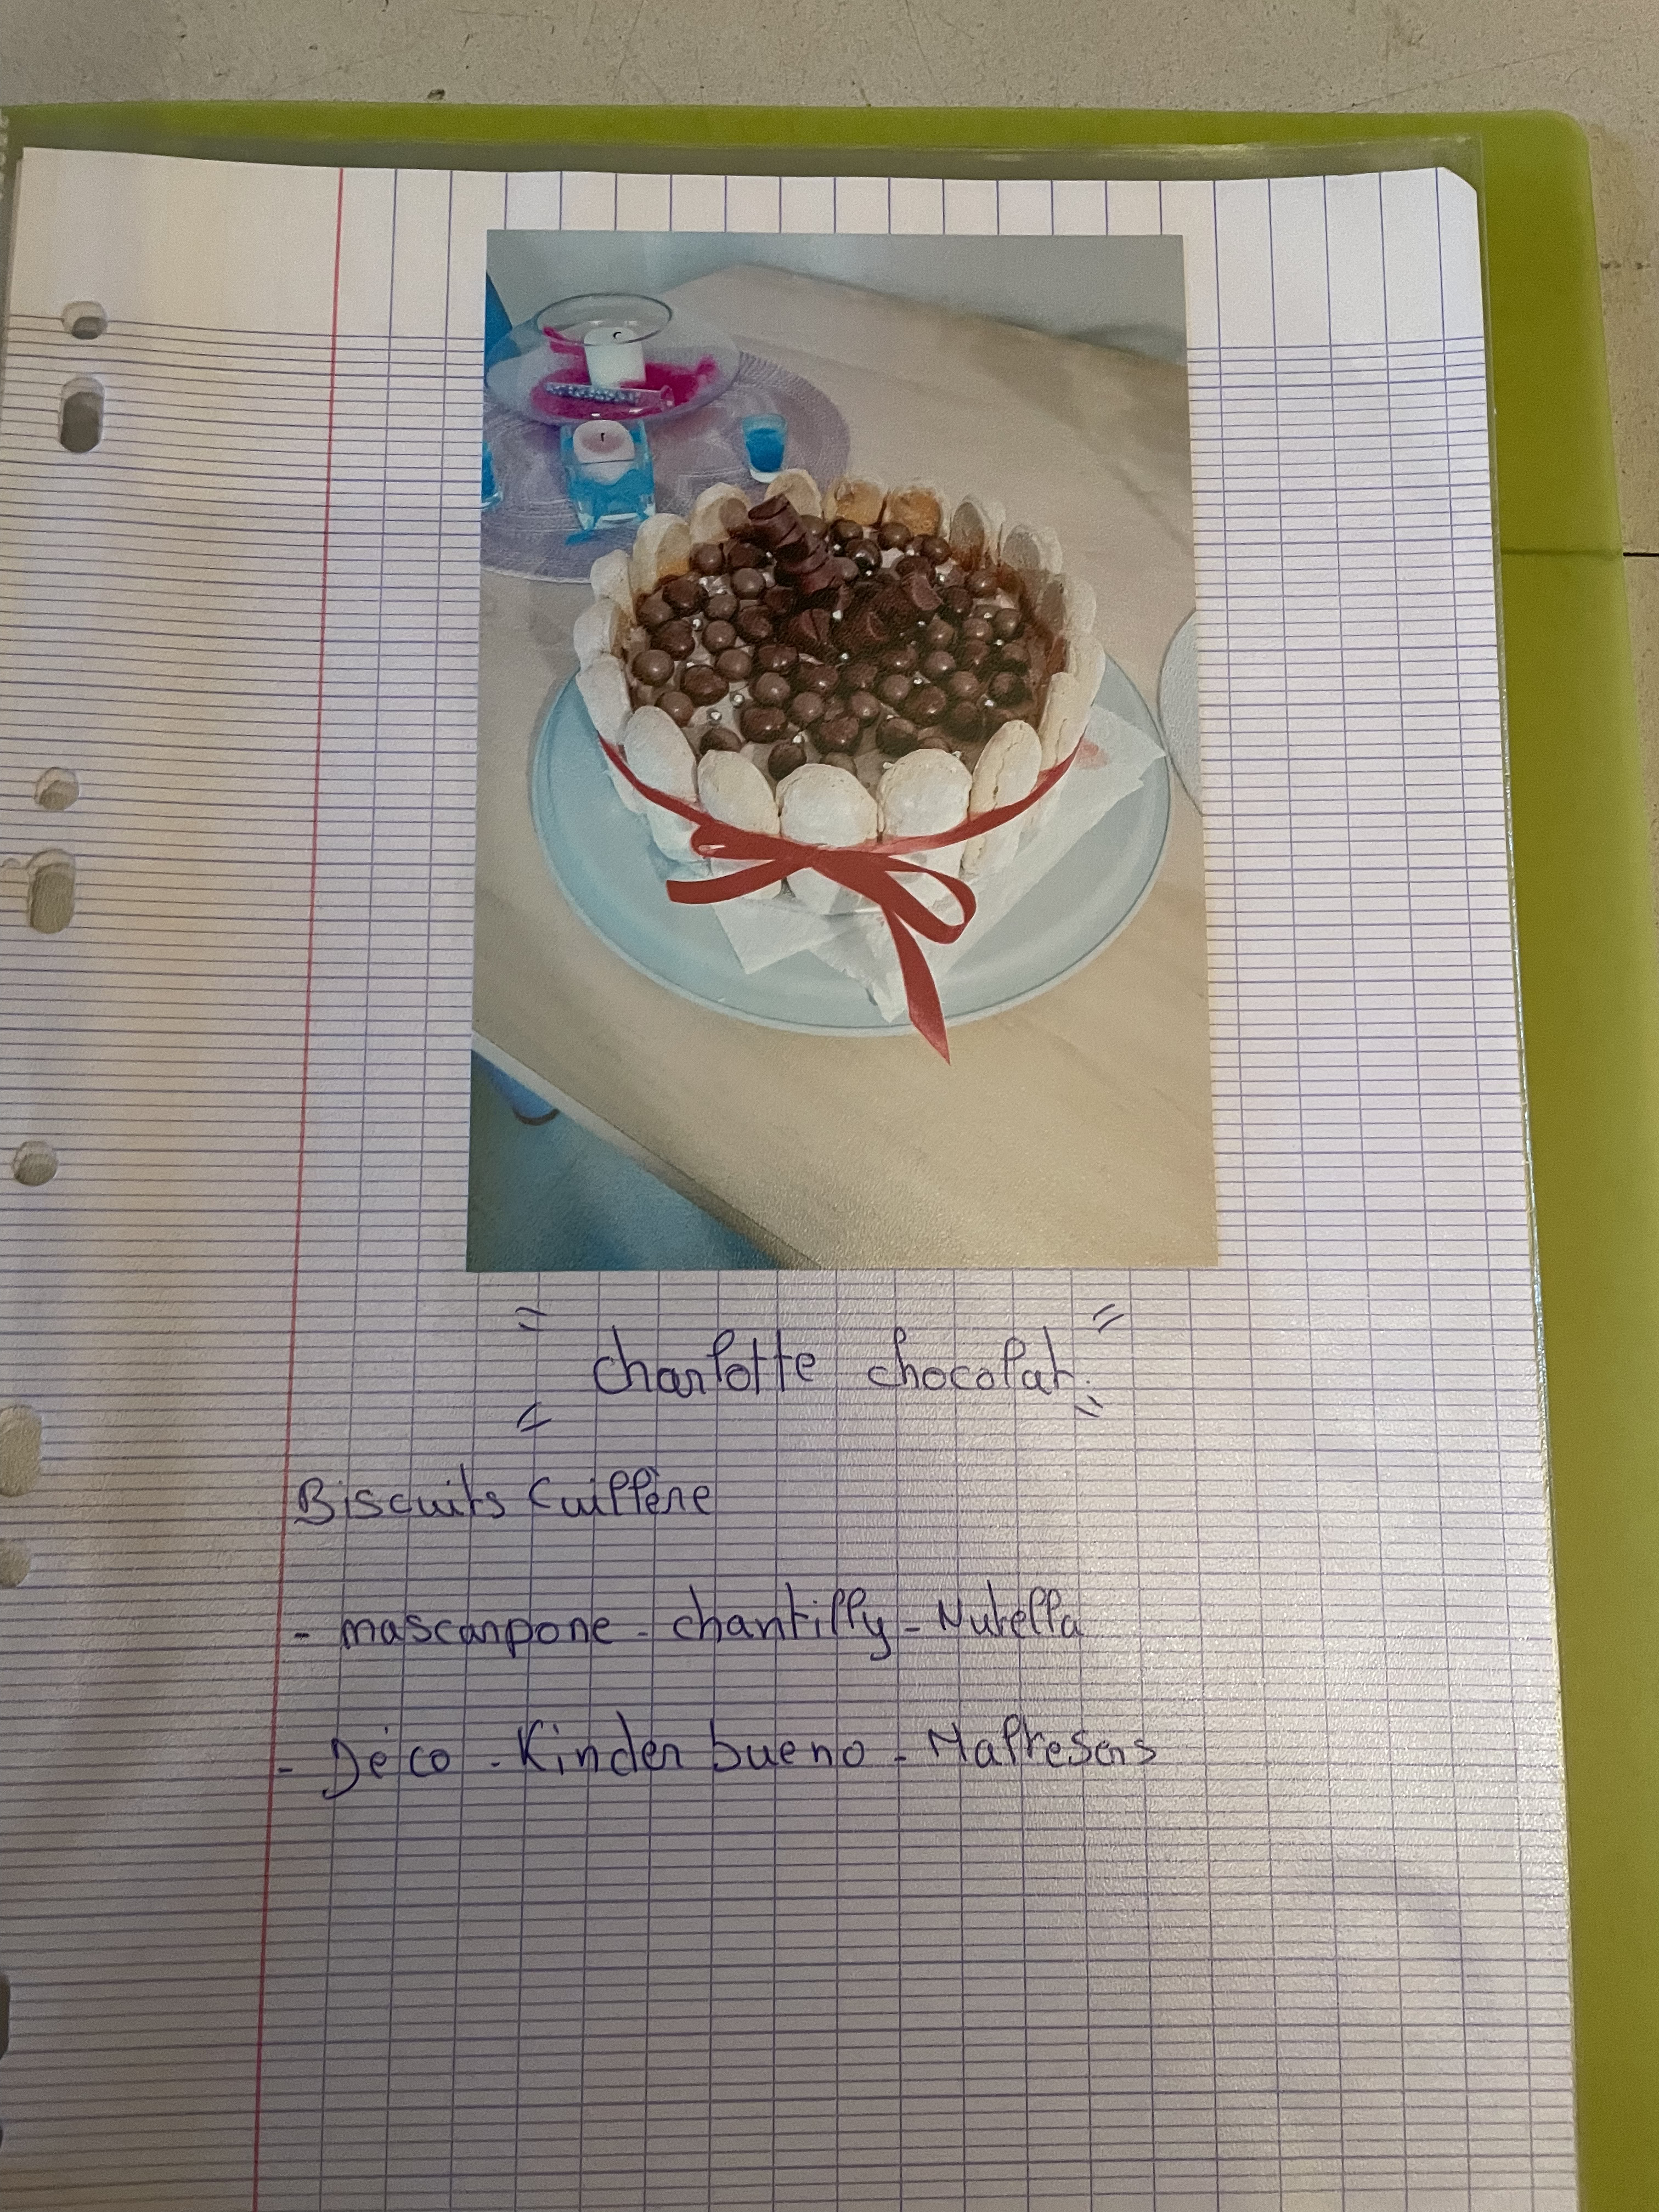 charlotte chocolat.
Biscuits Cuillère
- mascarpone - chantilly - Nutella
- Déco - Kinder bueno - Maltesers